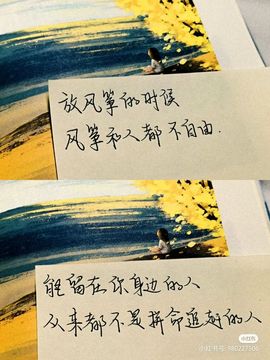 放风筝的时候
风筝和人都不自由.
能留在你身边的人
从来都不是拼命追赶的人
小红书
小红书号: 980227506